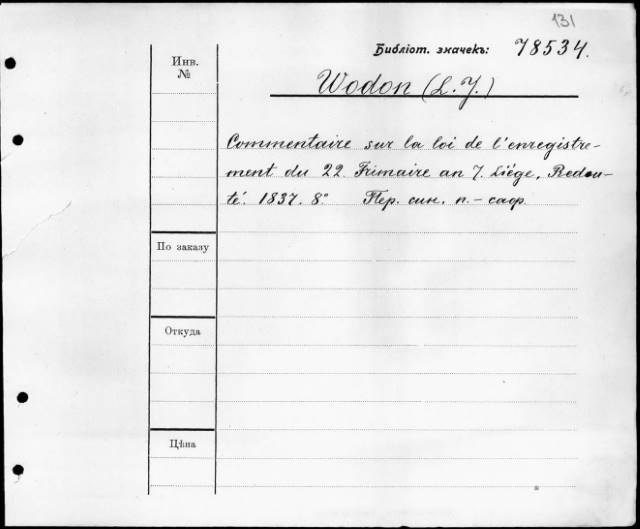 131
Библіот. значекъ: 78534.
Инв.
№
Wodon (L. J.)
Commentaire sur la loi de l'enregistre-
ment du 22. Frimaire an 7. Liége, Redou-
té. 1837. 8° Пер. син. п.- сафр.
По заказу
Откуда
Цѣна